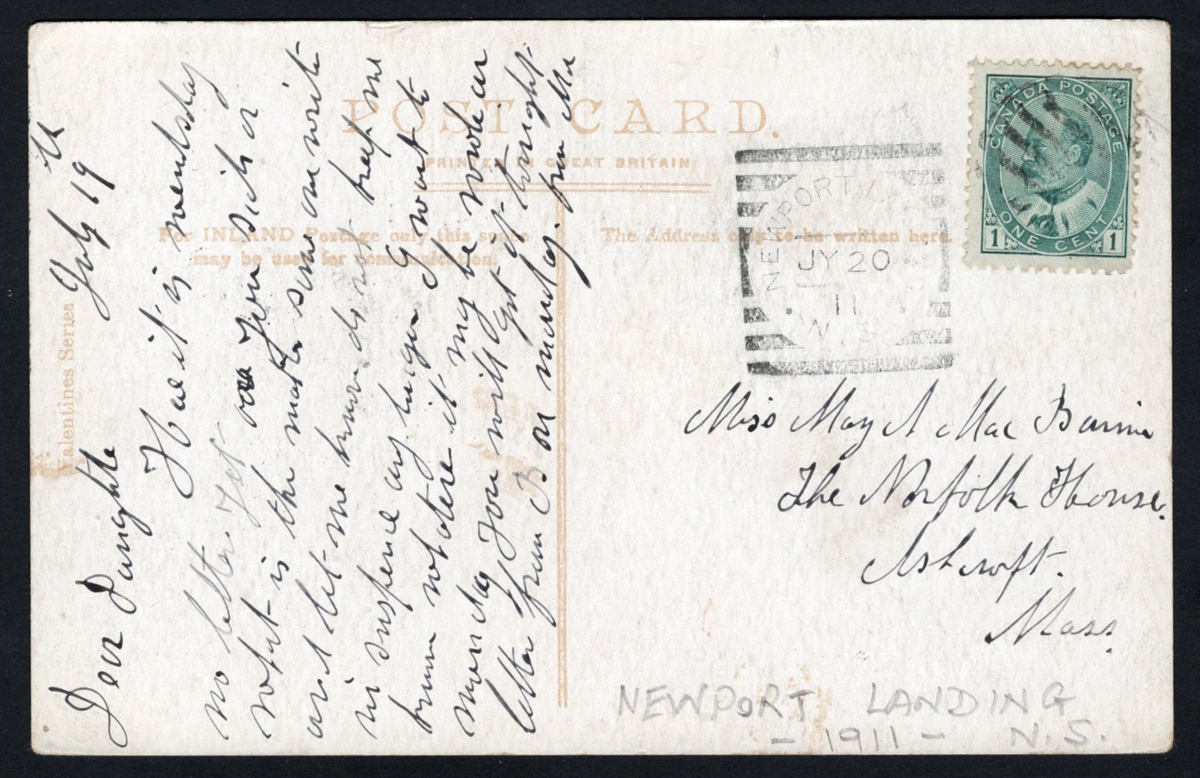 POST CARD.
PRINTED IN GREAT BRITAIN
For INLAND Postage only this space
may be used for communication.
The Address only to be written here.
Valentines Series
CANADA POSTAGE
ONE CENT
1 1
NEWPORT LA
JY 20
11
N.S.
July 19th
Dear Daughter
Here it is wentsday
no letter yet are you sick or
what is the mater some one write
and let me know do not keep me
in suspence any longer I want to
know notere it my be
monday you will get
letter from B on monday. from Ma
Miss May A Mac Burnie
The Norfolk House.
Ashcroft.
Mass.
NEWPORT LANDING
- 1911 - N.S.